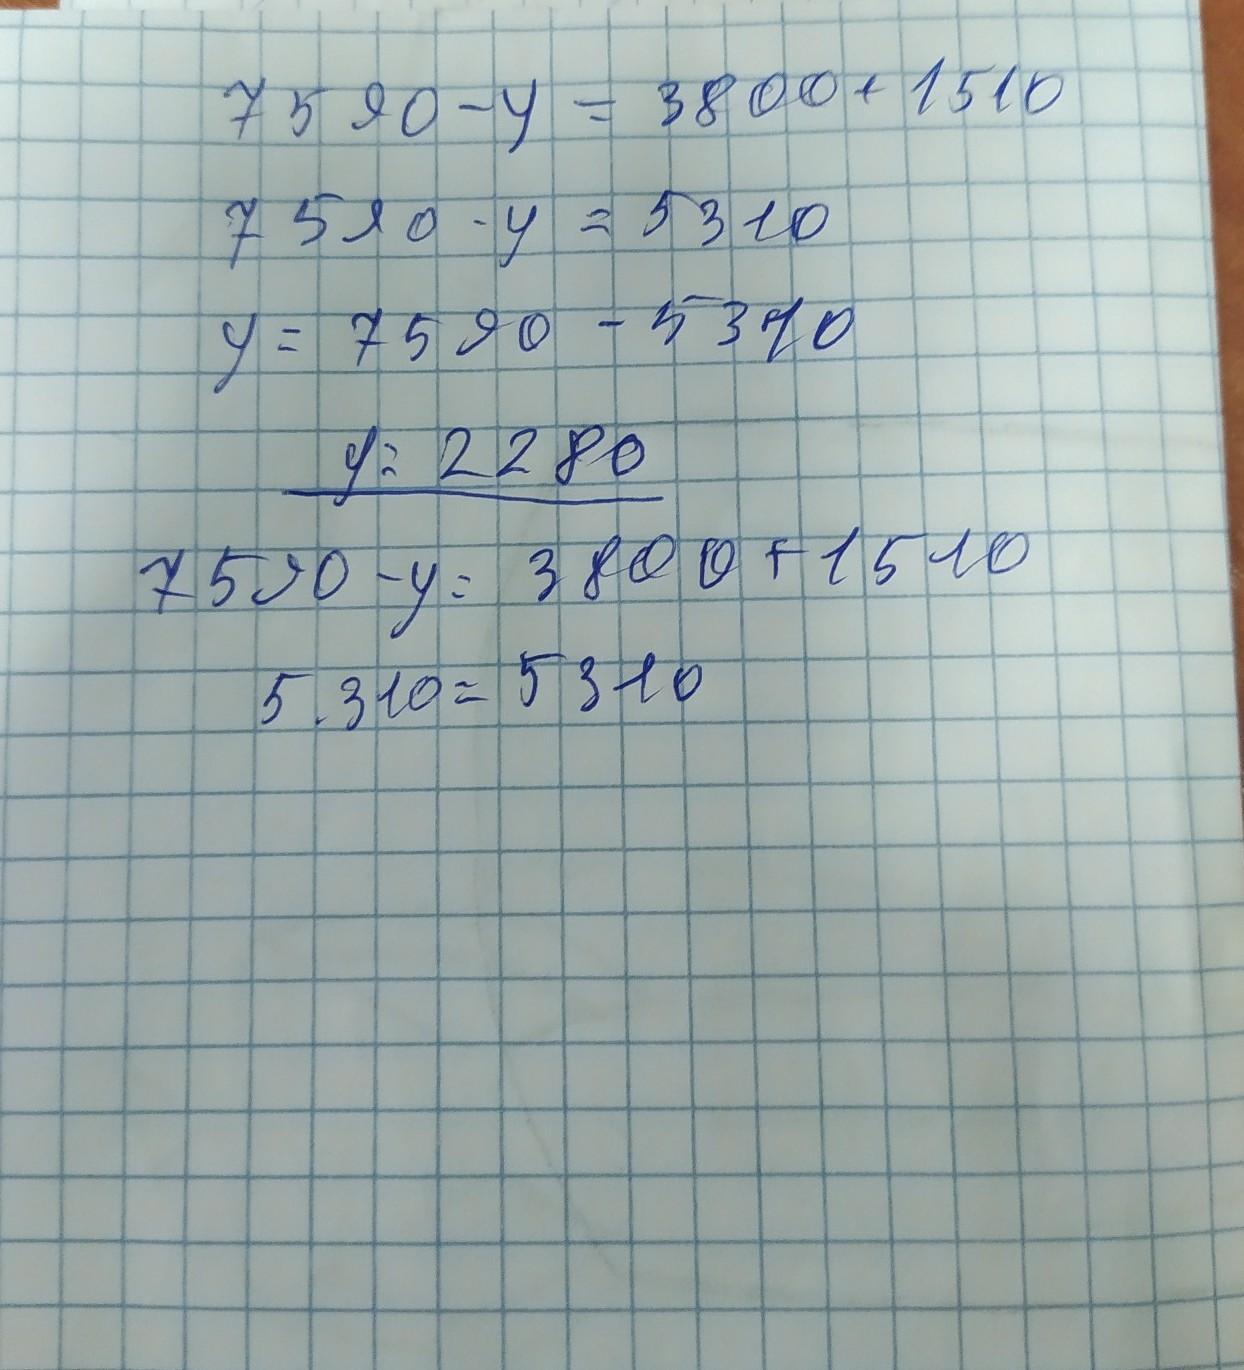 7590 - y = 3800 + 1510
7590 - y = 5310
y = 7590 - 5310
y = 2280
7590 - y = 3800 + 1510
5.310 = 5310